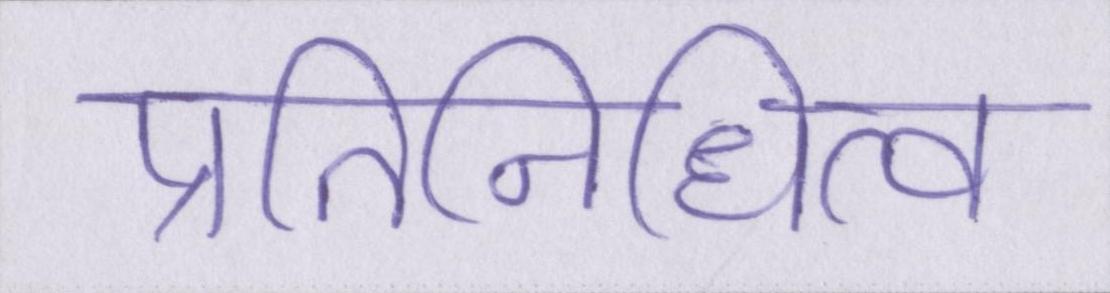 प्रतिनिधित्व